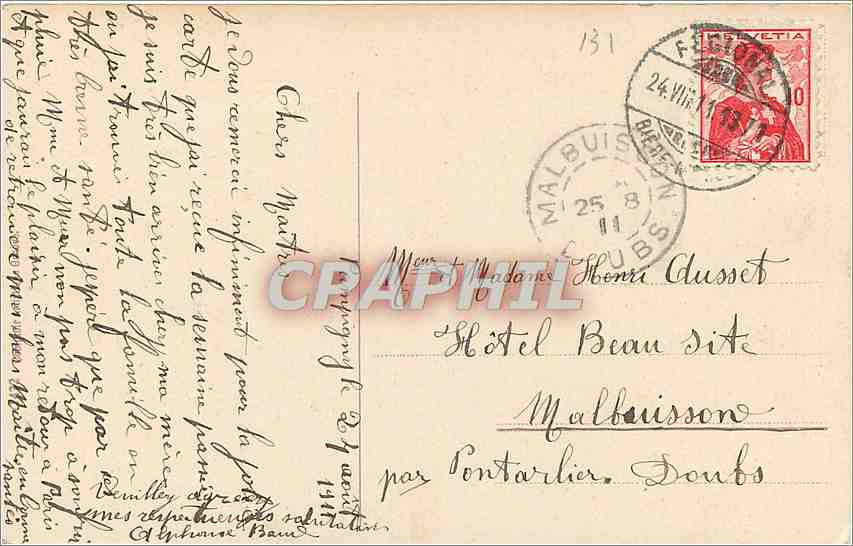 131
HELVETIA
10
24.VIII.11
MALBUISSON
25 8
11
DOUBS
CPAPHIL
Meur et Madame Henri Cusset
Hôtel Beau Site
Malbuisson
par Pontarlier. Doubs
Pampigny le 24 août
1911
Chers Maîtres
je vous remerci infiniment pour la jolie
carte que j'ai reçue la semaine passée
je suis très bien arrivée chez ma mère
ou j'ai trouvé toute la famille en
très bonne santé. j'espère que par
pluie Mme et Mseur von pas trop
A que j'aurai le plaisir a mon retour à Paris
de retrouver mes chers Maîtres en bonne
santés
Veuillez agréer
mes respectueuses salutations
Alphonse